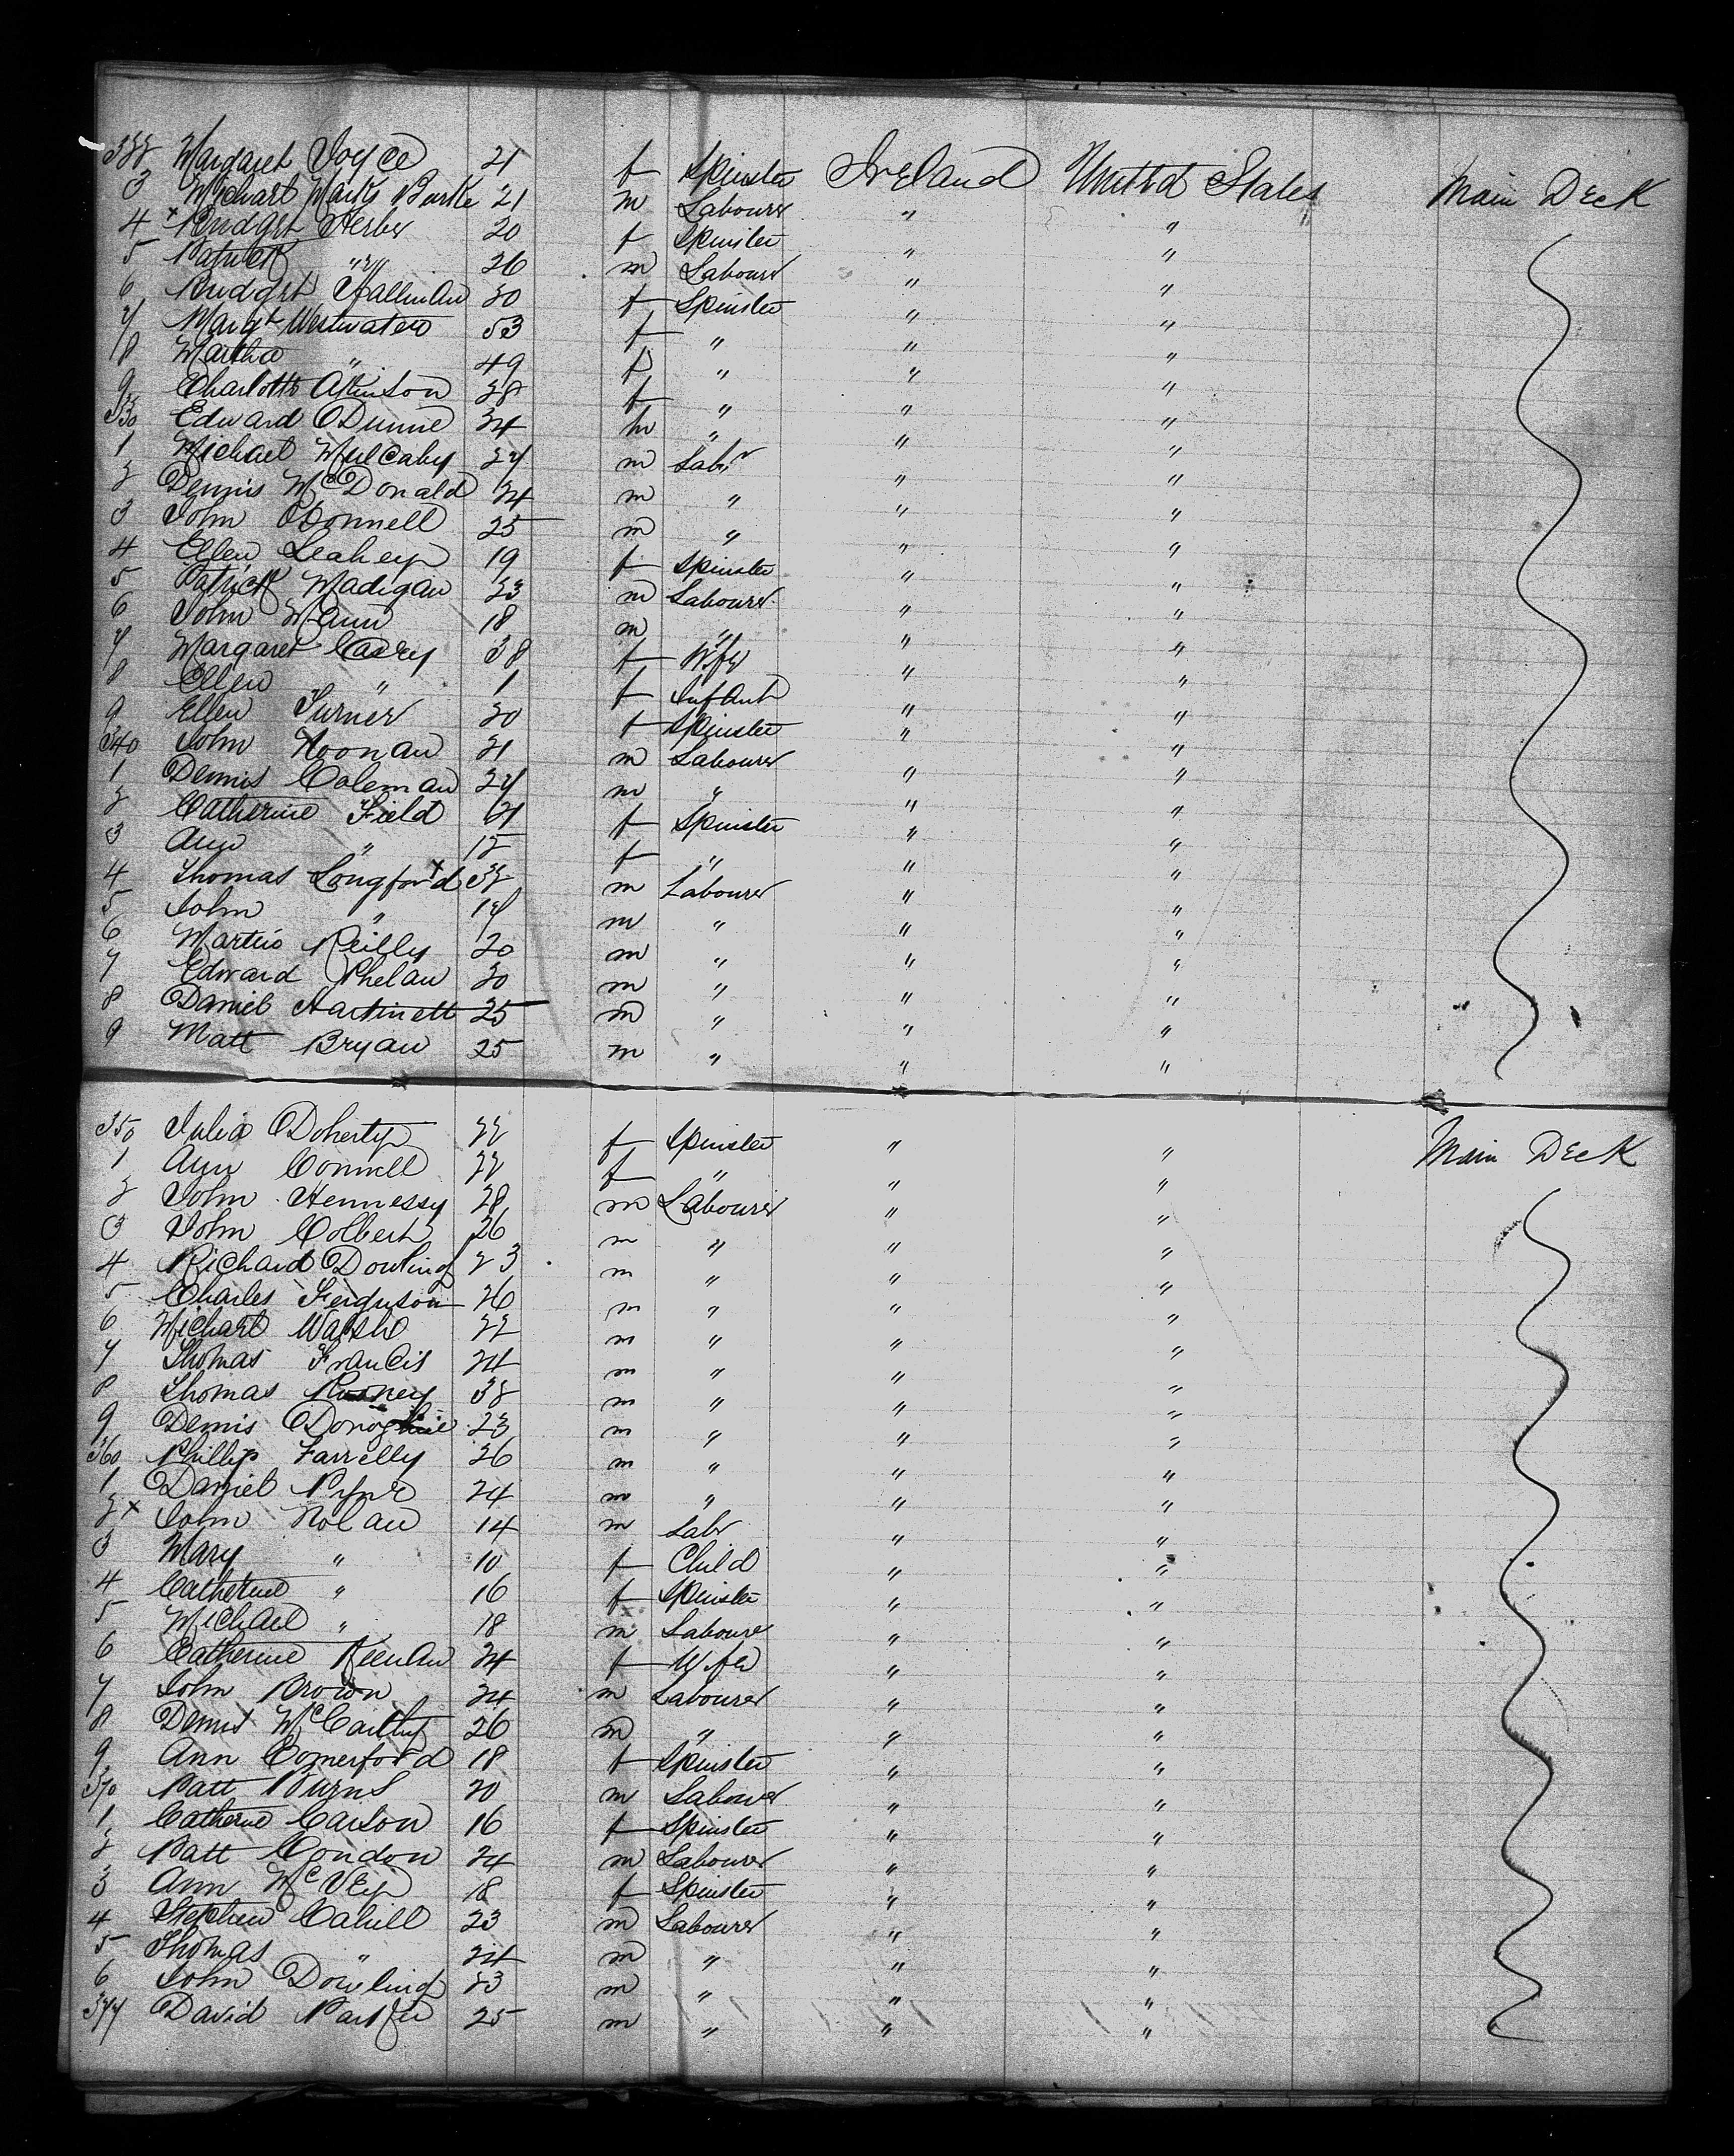 322 Margaret Joyce 21 f Spinster Ireland United States Main Deck
3 Michael Mark Burke 21 m Labourer " "
4 x Bridget Herber 20 f Spinster " "
5 Patrick " 26 m Labourer " "
6 Bridget Hallinan 30 f Spinster " "
7 Margt Westwater 53 f " " "
8 Martha " 49 f " " "
9 Charlotte Atkinson 28 f " " "
330 Edward ODunne 34 m " " "
1 Michael Mulcahy 27 m Labr " "
2 Dennis McDonald 24 m " " "
3 John ODonnell 25 m " " "
4 Ellen Leahey 19 f Spinster " "
5 Patrick Madigan 23 m Labourer " "
6 John Mann 18 m " " "
7 Margaret Carey 38 f Wife " "
8 Ellen " 1 f Infant " "
9 Ellen Turner 20 f Spinster " "
340 John Noonan 21 m Labourer " "
1 Dennis Coleman 27 m " " "
2 Catherine Field 21 f Spinster " "
3 Ann " 12 f " " "
4 Thomas Longford x 32 m Labourer " "
5 John " 17 m " " "
6 Martin Reilly 20 m " " "
7 Edward Phelan 30 m " " "
8 Daniel Hartinett 25 m " " "
9 Matt Bryan 25 m " " "
350 Julia Doherty 22 f Spinster " " Main Deck
1 Ann Connell 22 f " " "
2 John Hennessy 28 m Labourer " "
3 John Colbert 26 m " " "
4 Richard Dowling 23 m " " "
5 Charles Ferguson 26 m " " "
6 Michael Walsh 22 m " " "
7 Thomas Francis 24 m " " "
8 Thomas Rooney 38 m " " "
9 Dennis Donoghue 23 m " " "
360 Phillip Farrelly 26 m " " "
1 Daniel Pyne 24 m " " "
2 x John Nolan 14 m Labr " "
3 Mary " 10 f Child " "
4 Catherine " 16 f Spinster " "
5 Michael " 18 m Labourer " "
6 Catherine Keenan 24 f Wife " "
7 John Brown 24 m Labourer " "
8 Dennis McCarthy 26 m " " "
9 Ann Comerford 18 f Spinster " "
370 Patt Burns 20 m Labourer " "
1 Catherine Carson 16 f Spinster " "
2 Patt Condon 24 m Labourer " "
3 Ann McVey 18 f Spinster " "
4 Stephen Cahill 23 m Labourer " "
5 Thomas " 24 m " " "
6 John Dowling 23 m " " "
377 David 25 m " " "